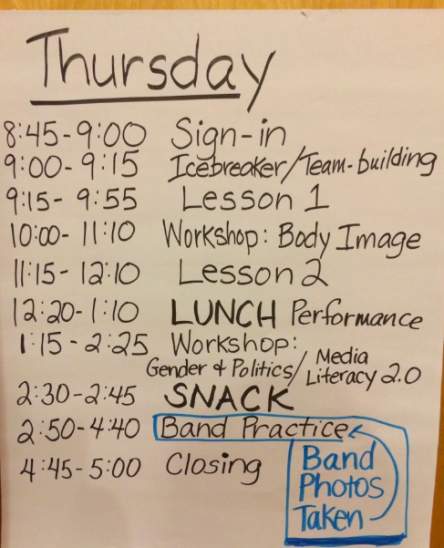 Thursday
8:45-9:00 Sign-in
9:00-9:15 Icebreaker/Team-building
9:15-9:55 Lesson 1
10:00-11:10 Workshop: Body Image
11:15-12:10 Lesson 2
12:20-1:10 LUNCH Performance
1:15-2:25 Workshop:
Gender & Politics/ Media
Literacy 2.0
2:30-2:45 SNACK
2:50-4:40 Band Practice
4:45-5:00 Closing
Band
Photos
Taken